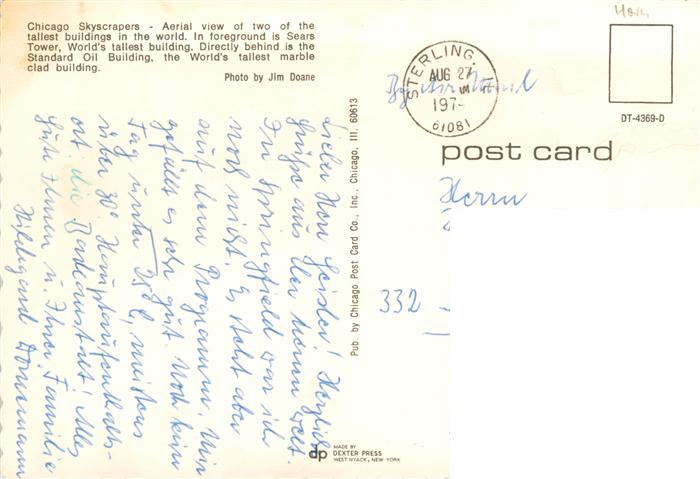 Chicago Skyscrapers - Aerial view of two of the
tallest buildings in the world. In foreground is Sears
Tower, World's tallest building. Directly behind is the
Standard Oil Building, the World's tallest marble
clad building.
Photo by Jim Doane
STERLING, IL
AUG 27
197
61081
By Air Mail
DT-4369-D
post card
Herrn
332
Lieber Herr Geisler! Herzliche
Grüße aus der neuen Welt.
In Springfield war ich
noch nicht. Es steht aber
auf dem Programm. Mir
gefällt es sehr gut. Noch kein
Tag unter 25°C, meistens
über 30°. Hauptaufenthalts-
ort: die Badeanstalt! Alles
Gute Ihnen u. Ihrer Familie
Hildegund
Pub. by Chicago Post Card Co., Inc., Chicago, Ill. 60613
dp
MADE BY
DEXTER PRESS
WEST NYACK, NEW YORK